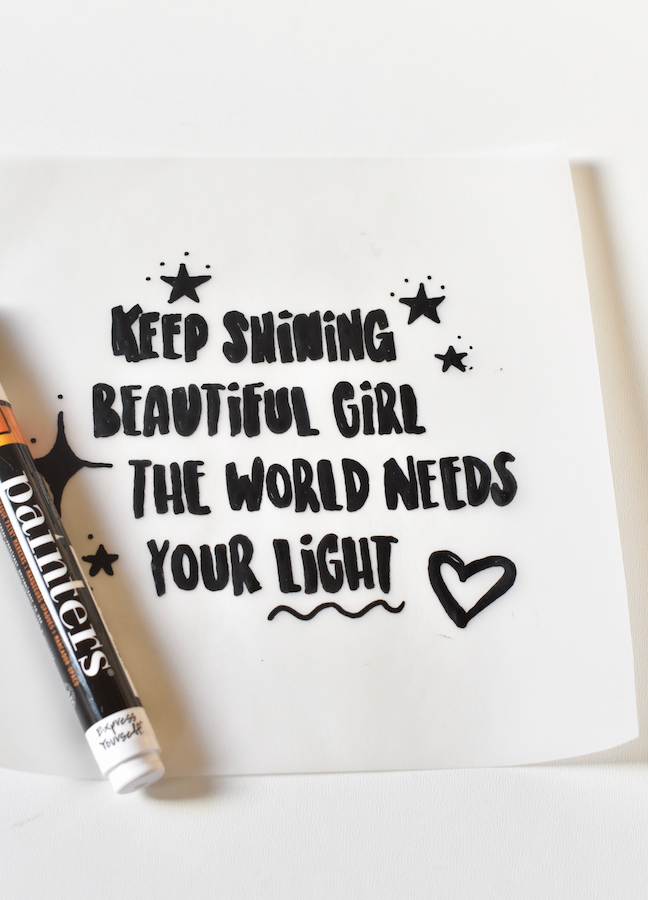 KEEP SHiNiNG
BEAUTiFUL GiRL
THE WORLD NEEDS
YOUR LiGHT
painters®
Express
Yourself!